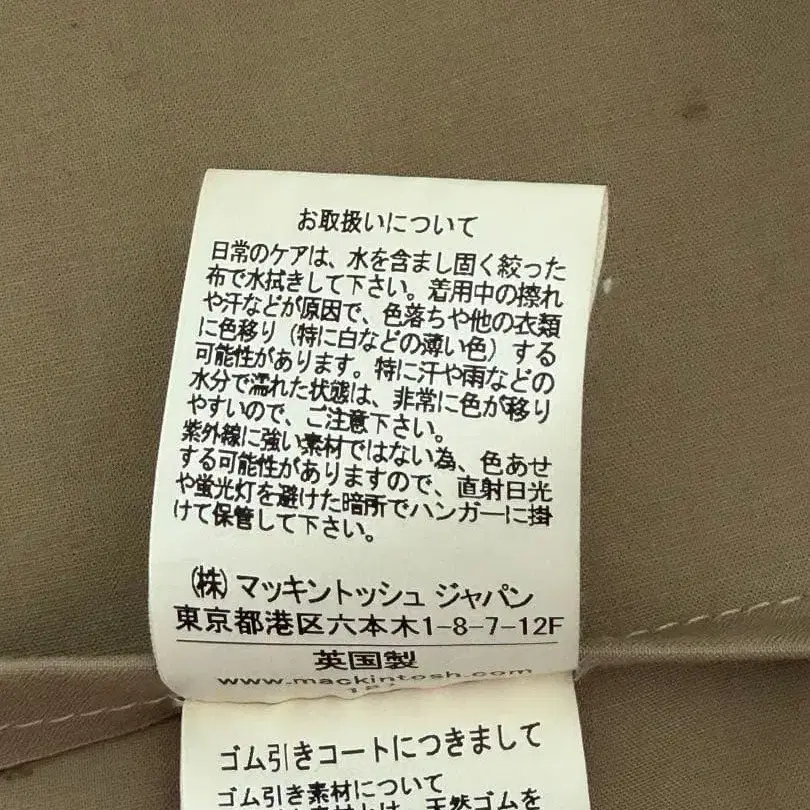 お取扱いについて
日常のケアは、水を含まし固く絞った
布で水拭きして下さい。着用中の擦れ
や汗などが原因で、色落ちや他の衣類
に色移り（特に白などの薄い色）する
可能性があります。特に汗や雨などの
水分で濡れた状態は、非常に色が移り
やすいので、ご注意下さい。
紫外線に強い素材ではない為、色あせ
する可能性がありますので、直射日光
や蛍光灯を避けた暗所でハンガーに掛
けて保管して下さい。
(株) マッキントッシュ ジャパン
東京都港区六本木1-8-7-12F
英国製
www.mackintosh.com
ゴム引きコートにつきまして
ゴム引き素材について
天然ゴムを